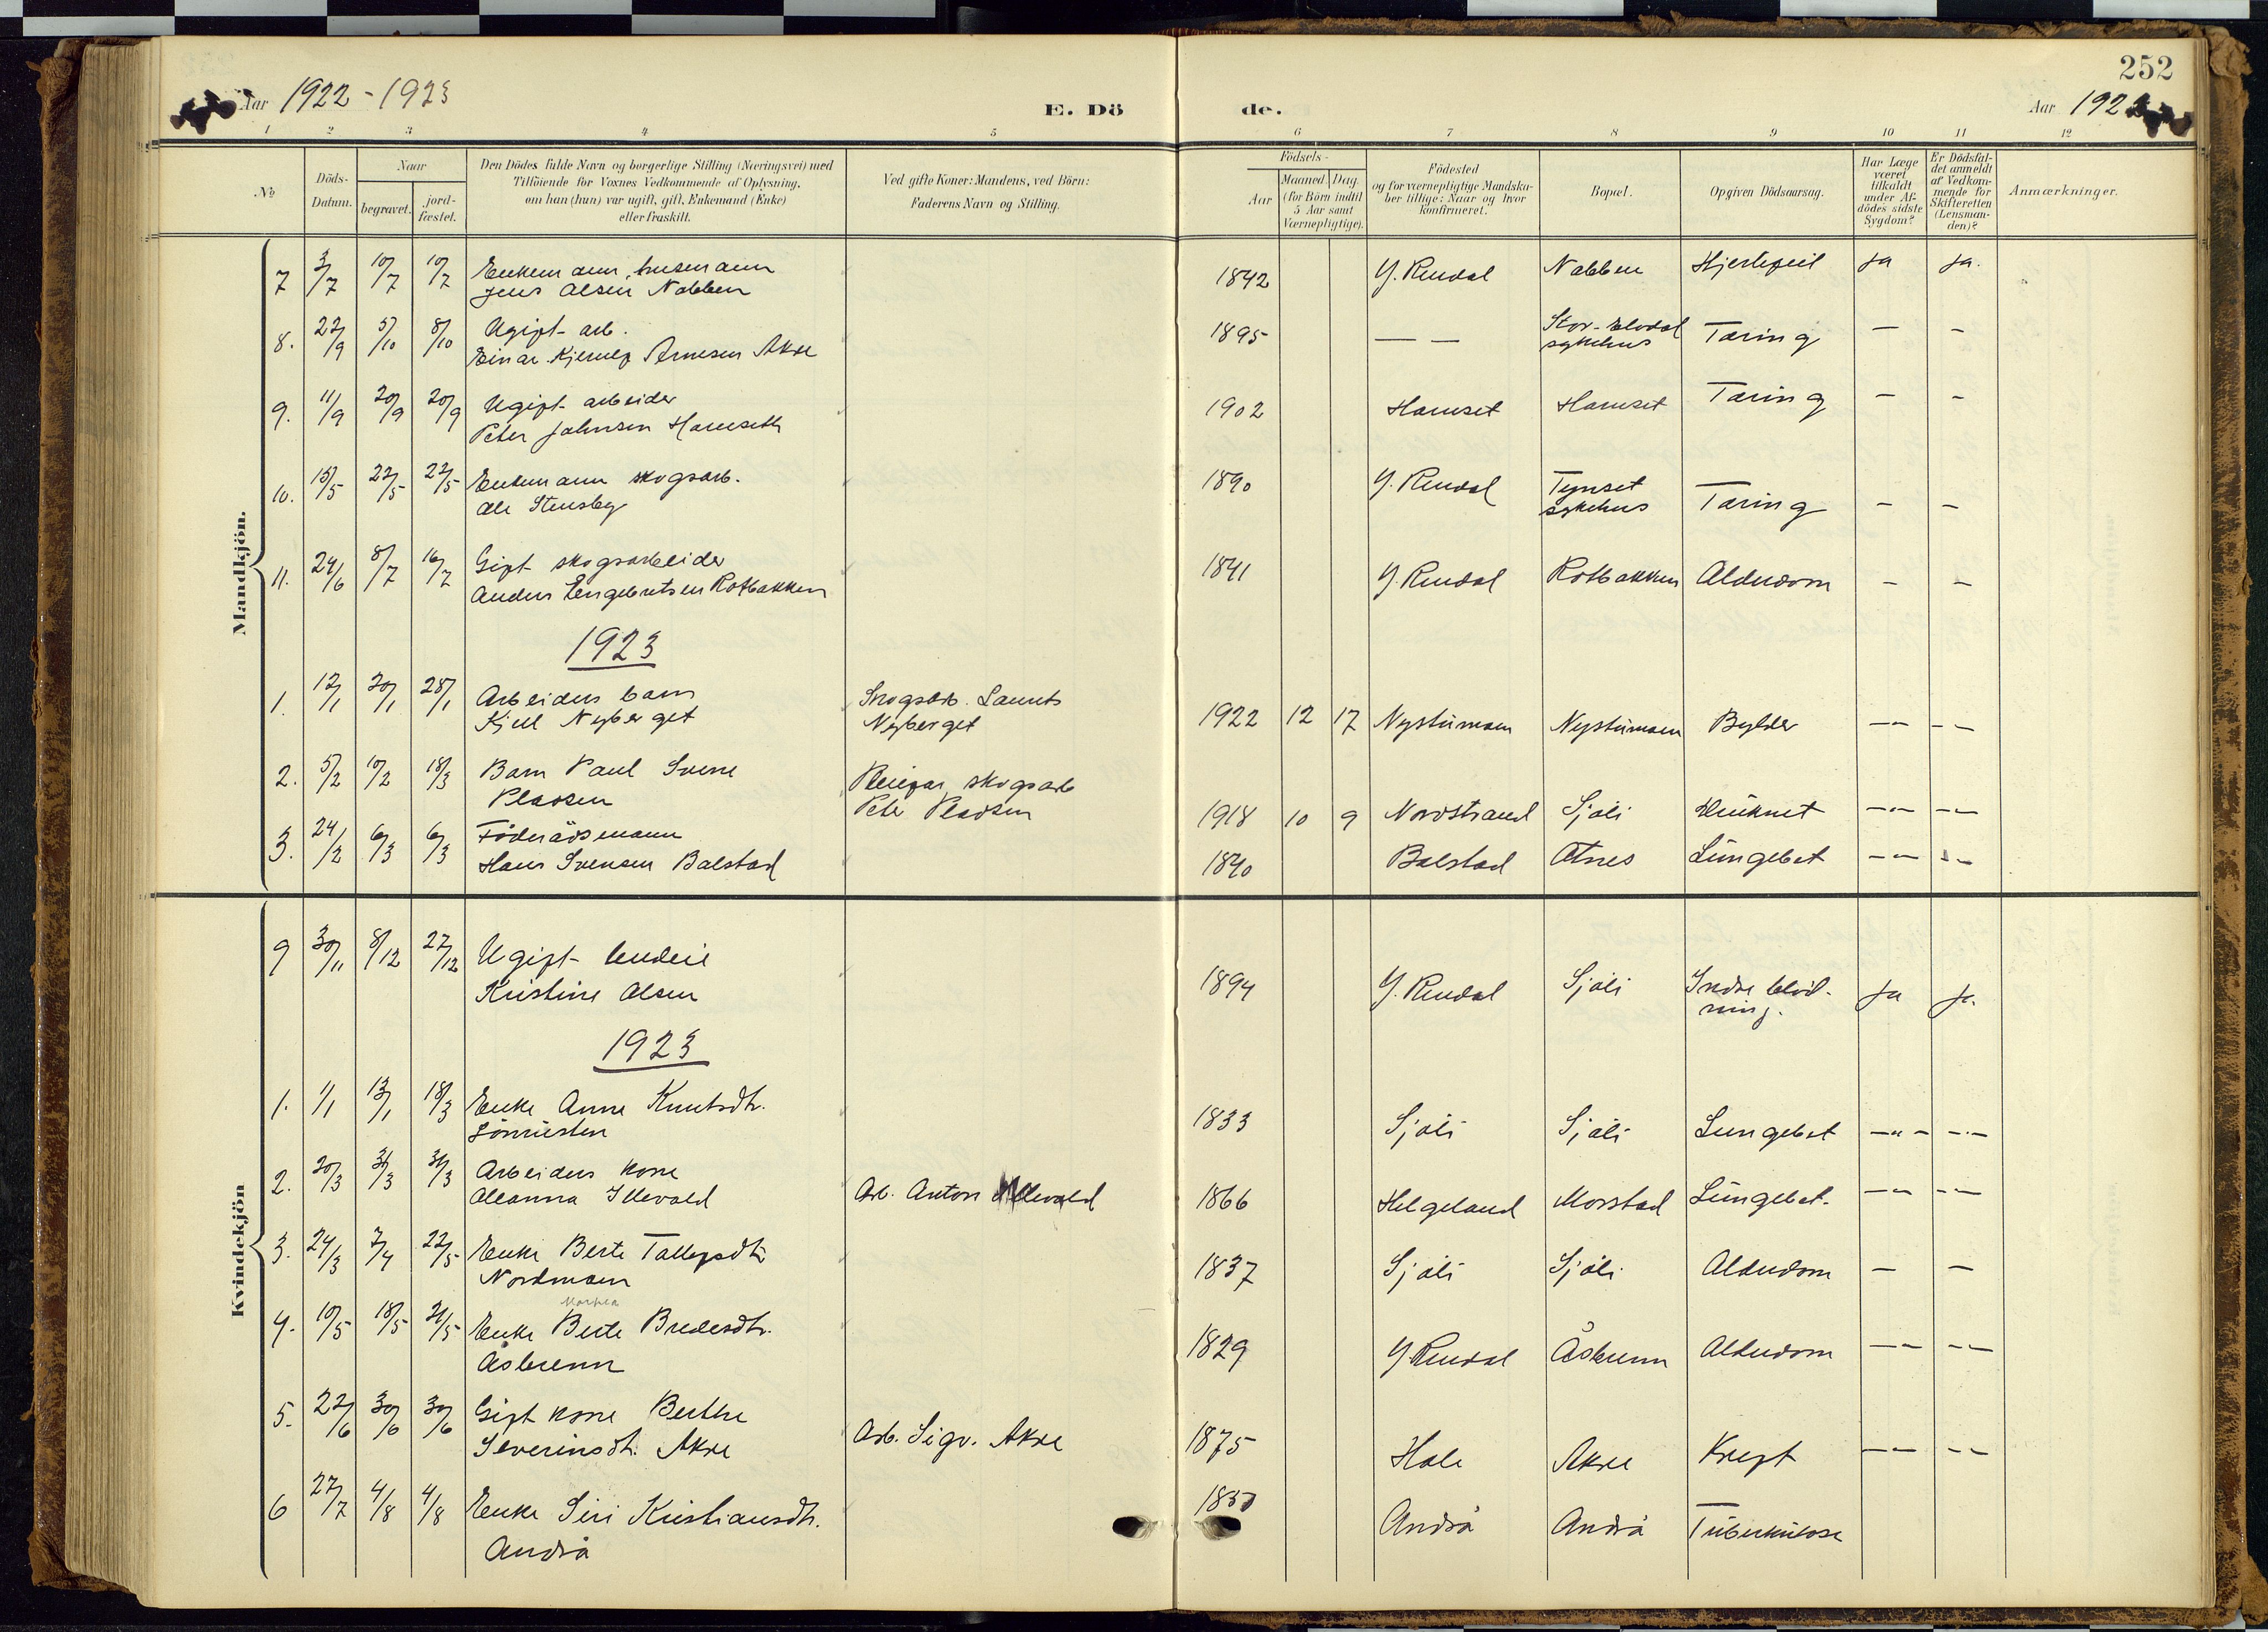 252
Aar 1922-1923
E. Dö
de.
Aar 192
1 2 3 4 5 6 7 8 9 10 11 12
No
Döds-Datum.
Naar
begravet.
jord-fæstet.
Den Dödes fulde Navn og borgerlige Stilling (Næringsvei) med
Tilföiende for Voxnes Vedkommende af Oplysning,
om han (hun) var ugift, gift, Enkemand (Enke)
eller fraskilt.
Ved gifte Koner: Mandens, ved Börn:
Faderens Navn og Stilling.
Födsels-
Aar
Maaned. Dag
(for Börn indtil
5 Aar samt
Værnepligtige).
Födested
og for værnepligtige Mandska-
ber tillige: Naar og hvor
konfirmeret.
Bopæl.
Opgiven Dödsaarsag.
Har Læge
været
tilkaldt
under Af-
dödes sidste
Sygdom?
Er Dödsfal-
det anmeldt
af Vedkom-
mende for
Skifteretten
(Lensman-
den)?
Anmærkninger.
Mandkjön.
7 3/7 10/7 10/7 Enkemann, husmann
Jens Olsen Nabben
1842 Y. Rendal Nabben Hjertefeil Ja Ja.
8. 22/9 5/10 8/10 Ugift arb.
Einar Kjerulf Arnesen Akre
1895 — — Stor-Elvdal
sykehus Tæring — —
9. 11/9 20/9 20/9 Ugift arbeider
Peter Johnsen Harnseth
1902 Harnset Harnset Tæring — —
10. 15/5 22/5 22/5 Enkemann skogsarb.
Ole Stensby
1890 Y. Rendal Tynset
sykehus Tæring — —
11. 24/6 8/7 16/7 Gift skogsarbeider
Anders Engebretsen Rotbakken
1841 Y. Rendal Rotbakken Alderdom — —
1923
1. 12/1 20/1 28/1 Arbeiders barn
Kjell Nyberget
Skogsarb. Laurits
Nyberget
1922 12 17 Nystumoen Nystumoen Bylder —"— —"—
2. 5/2 10/2 18/3 Barn Paul Sverre
Pladsen
Pleiefar, skogsarb
Peter Pladsen
1918 10 9 Nordstrand Sjøli —"— —"—
3. 24/2 6/3 6/3 Föderådsmann
Hans Svensen Balstad
1840 Balstad Atnes Lungebet —"— —"—
Kvindekjön
9 30/11 8/12 27/12 Ugift budeie
Kristine Olsen
1894 Y. Rendal Sjøli Indre blöd-
ning. Ja Ja.
1923
1. 1/1 13/1 18/3 Enke Anna Knutsdtr.
1833 Sjøli Sjøli Lungebet —"— —"—
2. 20/3 31/3 31/3 Arbeiders kone
Oleanna Illevold
Arb. Anton Illevold
1866 Helgeland Morstad Lungebet. —"— —"—
3. 24/3 7/4 22/5 Enke Berte Tollefsdtr
Nordmoen
1837 Sjøli Sjøli Alderdom — —
Marthea
4. 10/5 18/5 21/5 Enke Berte Bredesdtr.
Åsbrenn
1829 Y. Rendal Åsbrenn Alderdom —"— —"—
5. 22/6 30/6 30/6 Gift kone Berthe
Severinsdtr. Akre
Arb. Sigv. Akre
1875 Hole Akre Kreft —"— —"—
6 27/7 4/8 4/8 Enke Siri Kristiansdtr.
Andrå
Andrå Andrå Tuberkulose